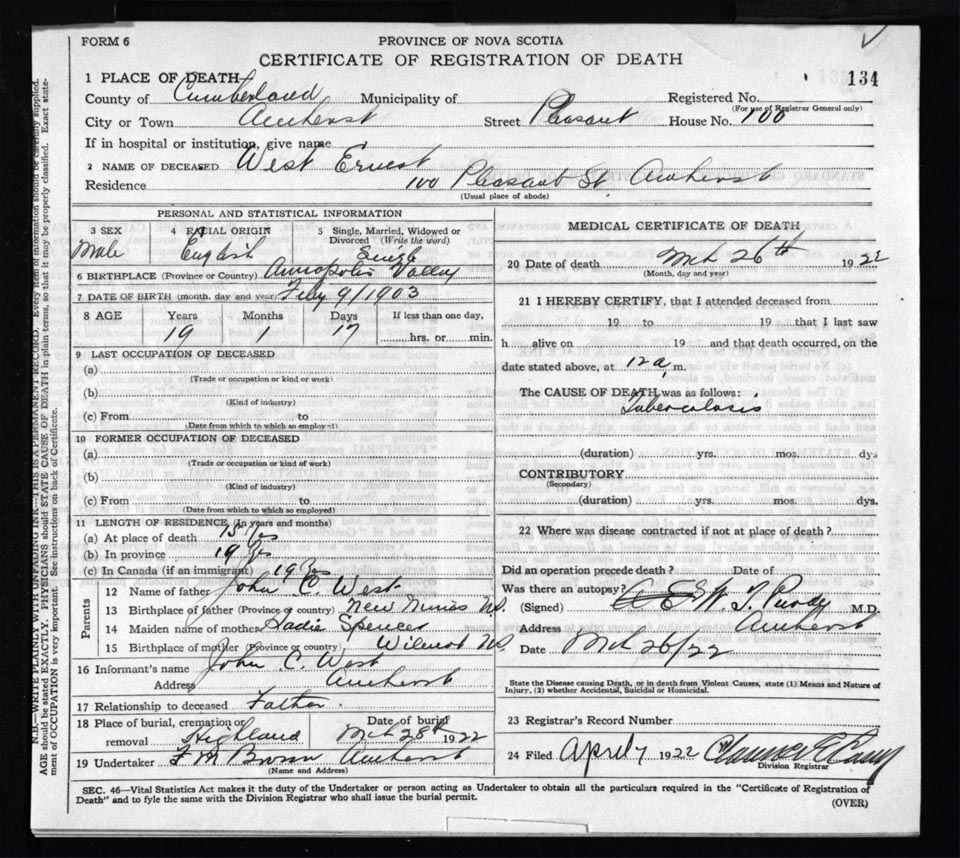 FORM 6
PROVINCE OF NOVA SCOTIA
CERTIFICATE OF REGISTRATION OF DEATH
134
1 PLACE OF DEATH
County of Cumberland Municipality of Registered No.
(For use of Registrar General only)
City or Town Amherst Street Pleasant House No. 100
If in hospital or institution, give name
2 NAME OF DECEASED West Ernest
Residence 100 Pleasant St. Amherst
(Usual place of abode)
PERSONAL AND STATISTICAL INFORMATION
3 SEX 4 RACIAL ORIGIN 5 Single, Married, Widowed or Divorced (Write the word)
Male English Single
6 BIRTHPLACE (Province or Country) Annapolis Valley
7 DATE OF BIRTH (month, day and year) Feby 9/1903
8 AGE Years Months Days If less than one day,
19 1 17 hrs. or min.
9 LAST OCCUPATION OF DECEASED
(a)
(Trade or occupation or kind or work)
(b)
(Kind of industry)
(c) From to
(Date from which to which so employed)
10 FORMER OCCUPATION OF DECEASED
(a)
(Trade or occupation or kind of work)
(b)
(Kind of industry)
(c) From to
(Date from which to which so employed)
11 LENGTH OF RESIDENCE (In years and months)
(a) At place of death 15 Yrs
(b) In province 19 Yrs
(c) In Canada (if an immigrant) 19 Yrs
Parents
12 Name of father John C. West
13 Birthplace of father (Province or country) New Minas N.S.
14 Maiden name of mother Sadie Spencer
15 Birthplace of mother (Province or country) Wilmot N.S.
16 Informant's name John C. West
Address Amherst
17 Relationship to deceased Father.
18 Place of burial, cremation or removal Highland
Date of burial Mch 28th 1922
19 Undertaker F M Brown Amherst
(Name and Address)
MEDICAL CERTIFICATE OF DEATH
20 Date of death Mch 26th 1922
(Month, day and year)
21 I HEREBY CERTIFY, that I attended deceased from
19 to 19 that I last saw
h alive on 19 and that death occurred, on the
date stated above, at 12 a, m.
The CAUSE OF DEATH was as follows:
Tuberculosis
(duration) yrs. mos. dys
CONTRIBUTORY
(Secondary)
(duration) yrs. mos. dys.
22 Where was disease contracted if not at place of death?
Did an operation precede death? Date of
Was there an autopsy?
(Signed) Purdy M.D.
Address Amherst
Date Mch 26/22
State the Disease causing Death, or in death from Violent Causes, state (1) Means and Nature of
Injury, (2) whether Accidental, Suicidal or Homicidal.
23 Registrar's Record Number
24 Filed April 7 1922
Division Registrar
SEC. 46—Vital Statistics Act makes it the duty of the Undertaker or person acting as Undertaker to obtain all the particulars required in the "Certificate of Registration of
Death" and to fyle the same with the Division Registrar who shall issue the burial permit.
(OVER)
N.B.—WRITE PLAINLY WITH UNFADING INK—THIS IS A PERMANENT RECORD. Every item of information should be carefully supplied.
AGE should be stated EXACTLY. PHYSICIANS should STATE CAUSE OF DEATH in plain terms, so that it may be properly classified. Exact state-
ment of OCCUPATION is very important. See instructions on back of Certificate.